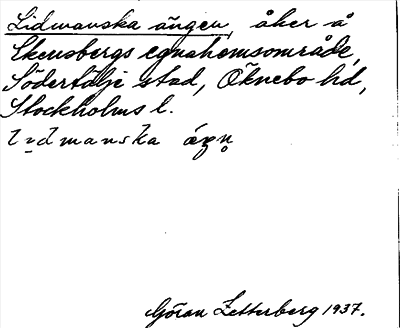 Lidmanska ängen, åker å
Skensbergs egnahemsområde,
Södertälje stad, Öknebo hd,
Stockholms l.
lidmanska
Göran Zetterberg 1937.